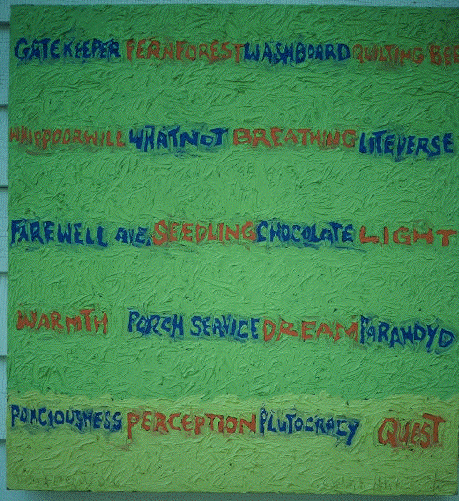 GATEKEEPER FERNFOREST WASHBOARD QUILTING BEE
WHIPPOORWILL WHATNOT BREATHING LITEVERSE
FAREWELL AVE. SEEDLING CHOCOLATE LIGHT
WARMTH PORCH SERVICE DREAM PARANOYD
PONCIOUSNESS PERCEPTION PLUTOCRACY QUEST